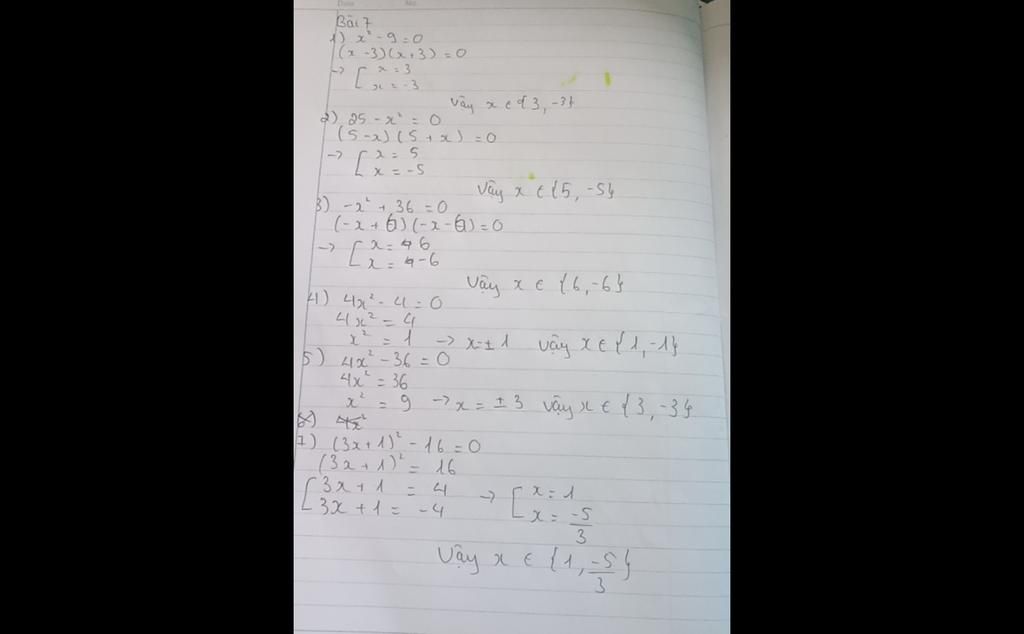 Date No.
Bài 7
1) x² - 9 = 0
(x - 3)(x + 3) = 0
→ [ x = 3
x = -3
Vậy x ∈ {3, -3}
2) 25 - x² = 0
(5 - x)(5 + x) = 0
→ [ x = 5
x = -5
Vậy x ∈ {5, -5}
3) -x² + 36 = 0
(-x + 6)(-x - 6) = 0
→ [ x = 6
x = -6
Vậy x ∈ {6, -6}
4) 4x² - 4 = 0
4x² = 4
x² = 1 → x = ± 1 Vậy x ∈ {1, -1}
5) 4x² - 36 = 0
4x² = 36
x² = 9 → x = ± 3 Vậy x ∈ {3, -3}
6) 4x²
7) (3x + 1)² - 16 = 0
(3x + 1)² = 16
[ 3x + 1 = 4 → [ x = 1
3x + 1 = -4 x = -5/3
Vậy x ∈ {1, -5/3}